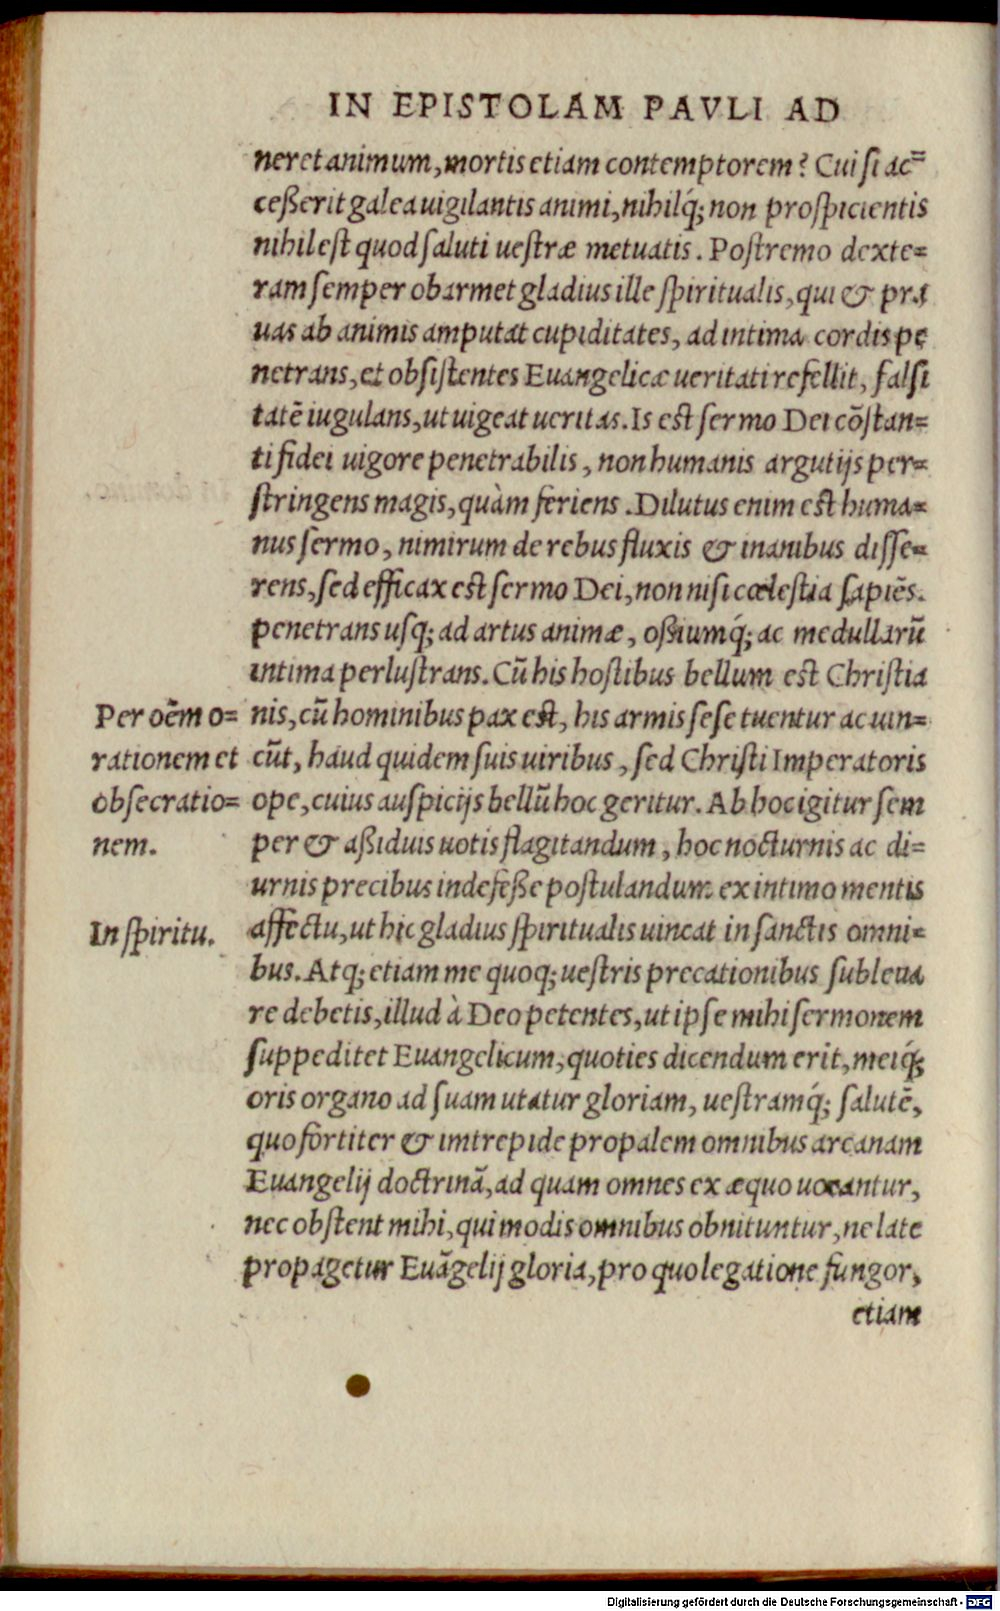 IN EPISTOLAM PAVLI AD
neret animum, mortis etiam contemptorem? Cui si ac=
ceßerit galea uigilantis animi, nihilq́; non prospicientis
nihil est quod saluti uestræ metuatis. Postremo dexte=
ram semper obarmet gladius ille spiritualis, qui & pra
uas ab animis amputat cupiditates, ad intima cordis pe
netrans, et obsistentes Euangelicæ ueritati refellit, falsi
tatē iugulans, ut uigeat ueritas. Is est sermo Dei cōstan=
ti fidei uigore penetrabilis, non humanis argutijs per=
stringens magis, quàm feriens. Dilutus enim est huma=
nus sermo, nimirum de rebus fluxis & inanibus disse=
rens, sed efficax est sermo Dei, non nisi cœlestia sapiēs.
penetrans usq; ad artus animæ, oßiumq́; ac medullarū
intima perlustrans. Cū his hostibus bellum est Christia
Per oēm o=
rationem et
obsecratio=
nem.
nis, cū hominibus pax est, his armis sese tuentur ac uin=
cūt, haud quidem suis uiribus, sed Christi Imperatoris
ope, cuius auspicijs bellū hoc geritur. Ab hoc igitur sem
per & aßiduis uotis flagitandum, hoc nocturnis ac di=
urnis precibus indefeße postulandum ex intimo mentis
In spiritu.
affectu, ut hic gladius spiritualis uincat in sanctis omni=
bus. Atq; etiam me quoq; uestris precationibus subleua
re debetis, illud à Deo petentes, ut ipse mihi sermonem
suppeditet Euangelicum, quoties dicendum erit, meiq́;
oris organo ad suam utatur gloriam, uestramq́; salutē,
quo fortiter & intrepide propalem omnibus arcanam
Euangelij doctrinā, ad quam omnes ex æquo uocantur,
nec obstent mihi, qui modis omnibus obnituntur, ne late
propagetur Euāgelij gloria, pro quo legatione fungor,
etiam
Digitalisierung gefördert durch die Deutsche Forschungsgemeinschaft - DFG